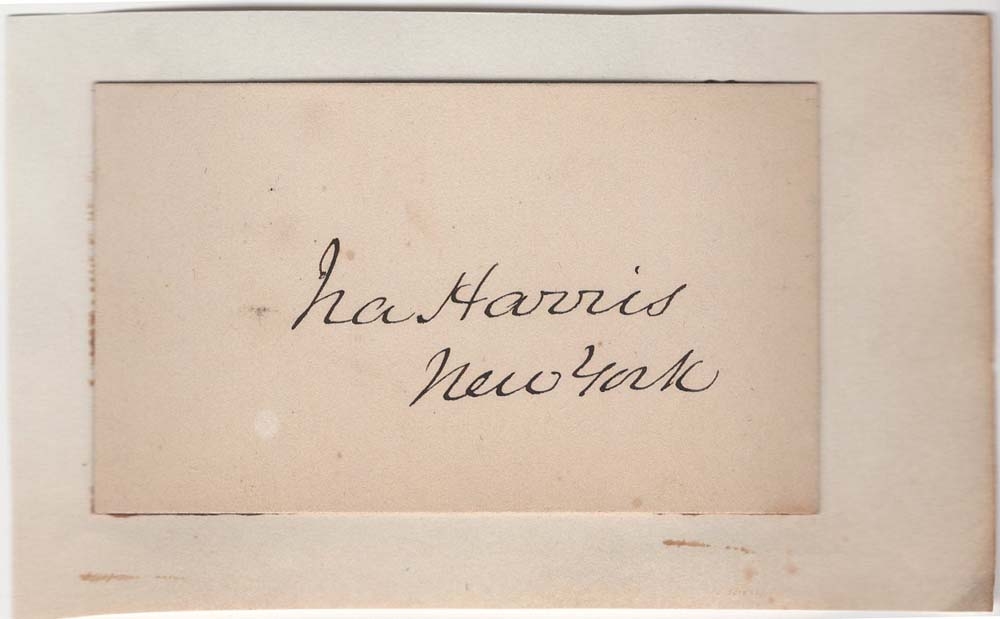 Ira Harris
New York